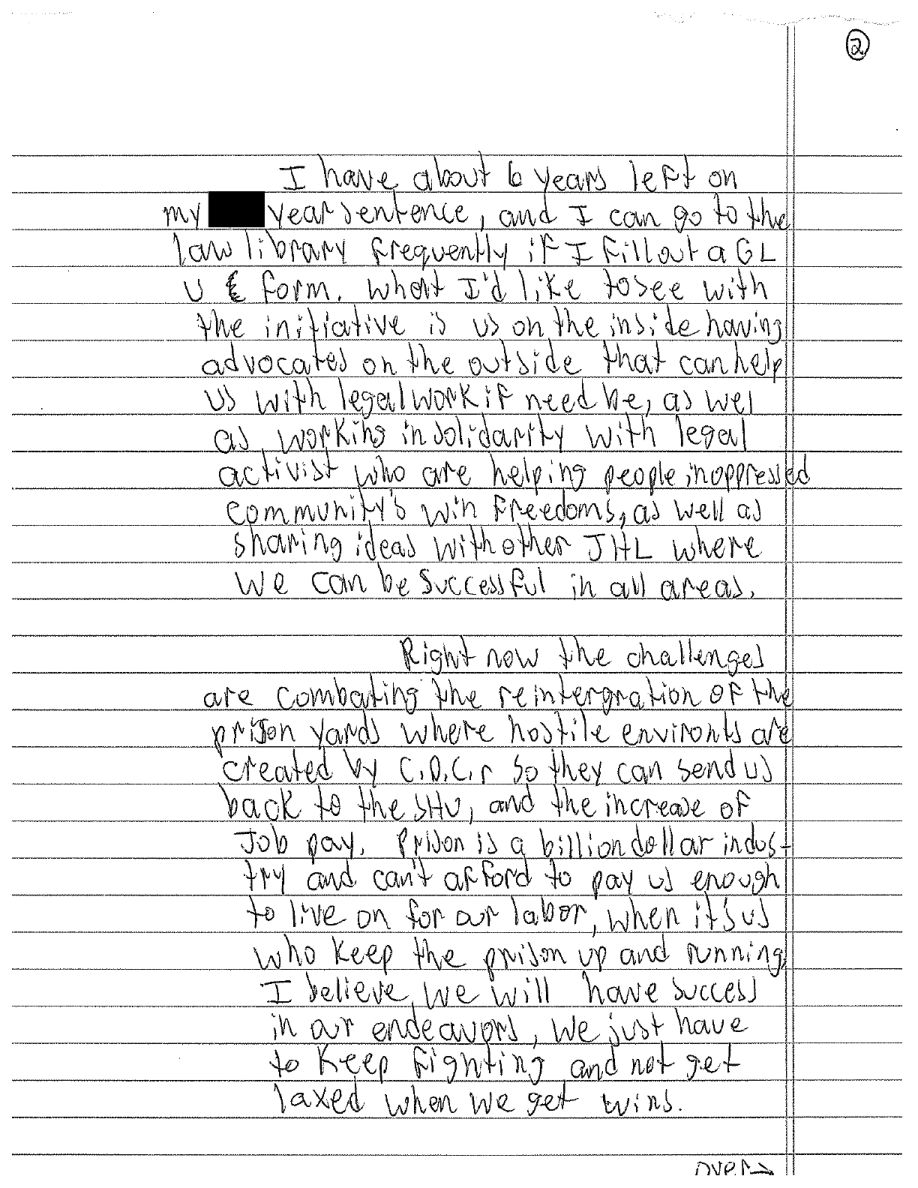 ②
I have about 6 years left on
my year sentence, and I can go to the
law library frequently if I fill out a GL
U E form. What I'd like to see with
the initiative is us on the inside having
advocates on the outside that can help
us with legal work if need be, as wel
as working in solidarity with legal
activist who are helping people in oppressed
community's win freedoms, as well as
sharing ideas with other JHL where
we can be successful in all areas.
Right now the challenges
are combating the reintergration of the
prison yards where hostile environts are
created by C.D.C.r so they can send us
back to the SHU, and the increase of
Job pay. Prison is a billion dollar indus-
try and can't afford to pay us enough
to live on for our labor, when it's us
who keep the prison up and running.
I believe we will have success
in our endeavors, we just have
to keep fighting and not get
laxed when we get wins.
over→